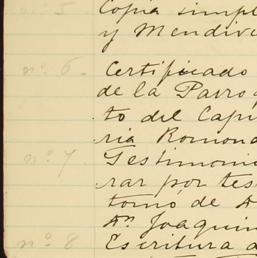 nº 5 Copia simpl
y Mendive
nº 6 Certificado
de la Parro
to del Capi
ria Romona
nº 7 Testimoni
rar por tes
tomo de A
Dn Joaquin
nº 8 Escritura d